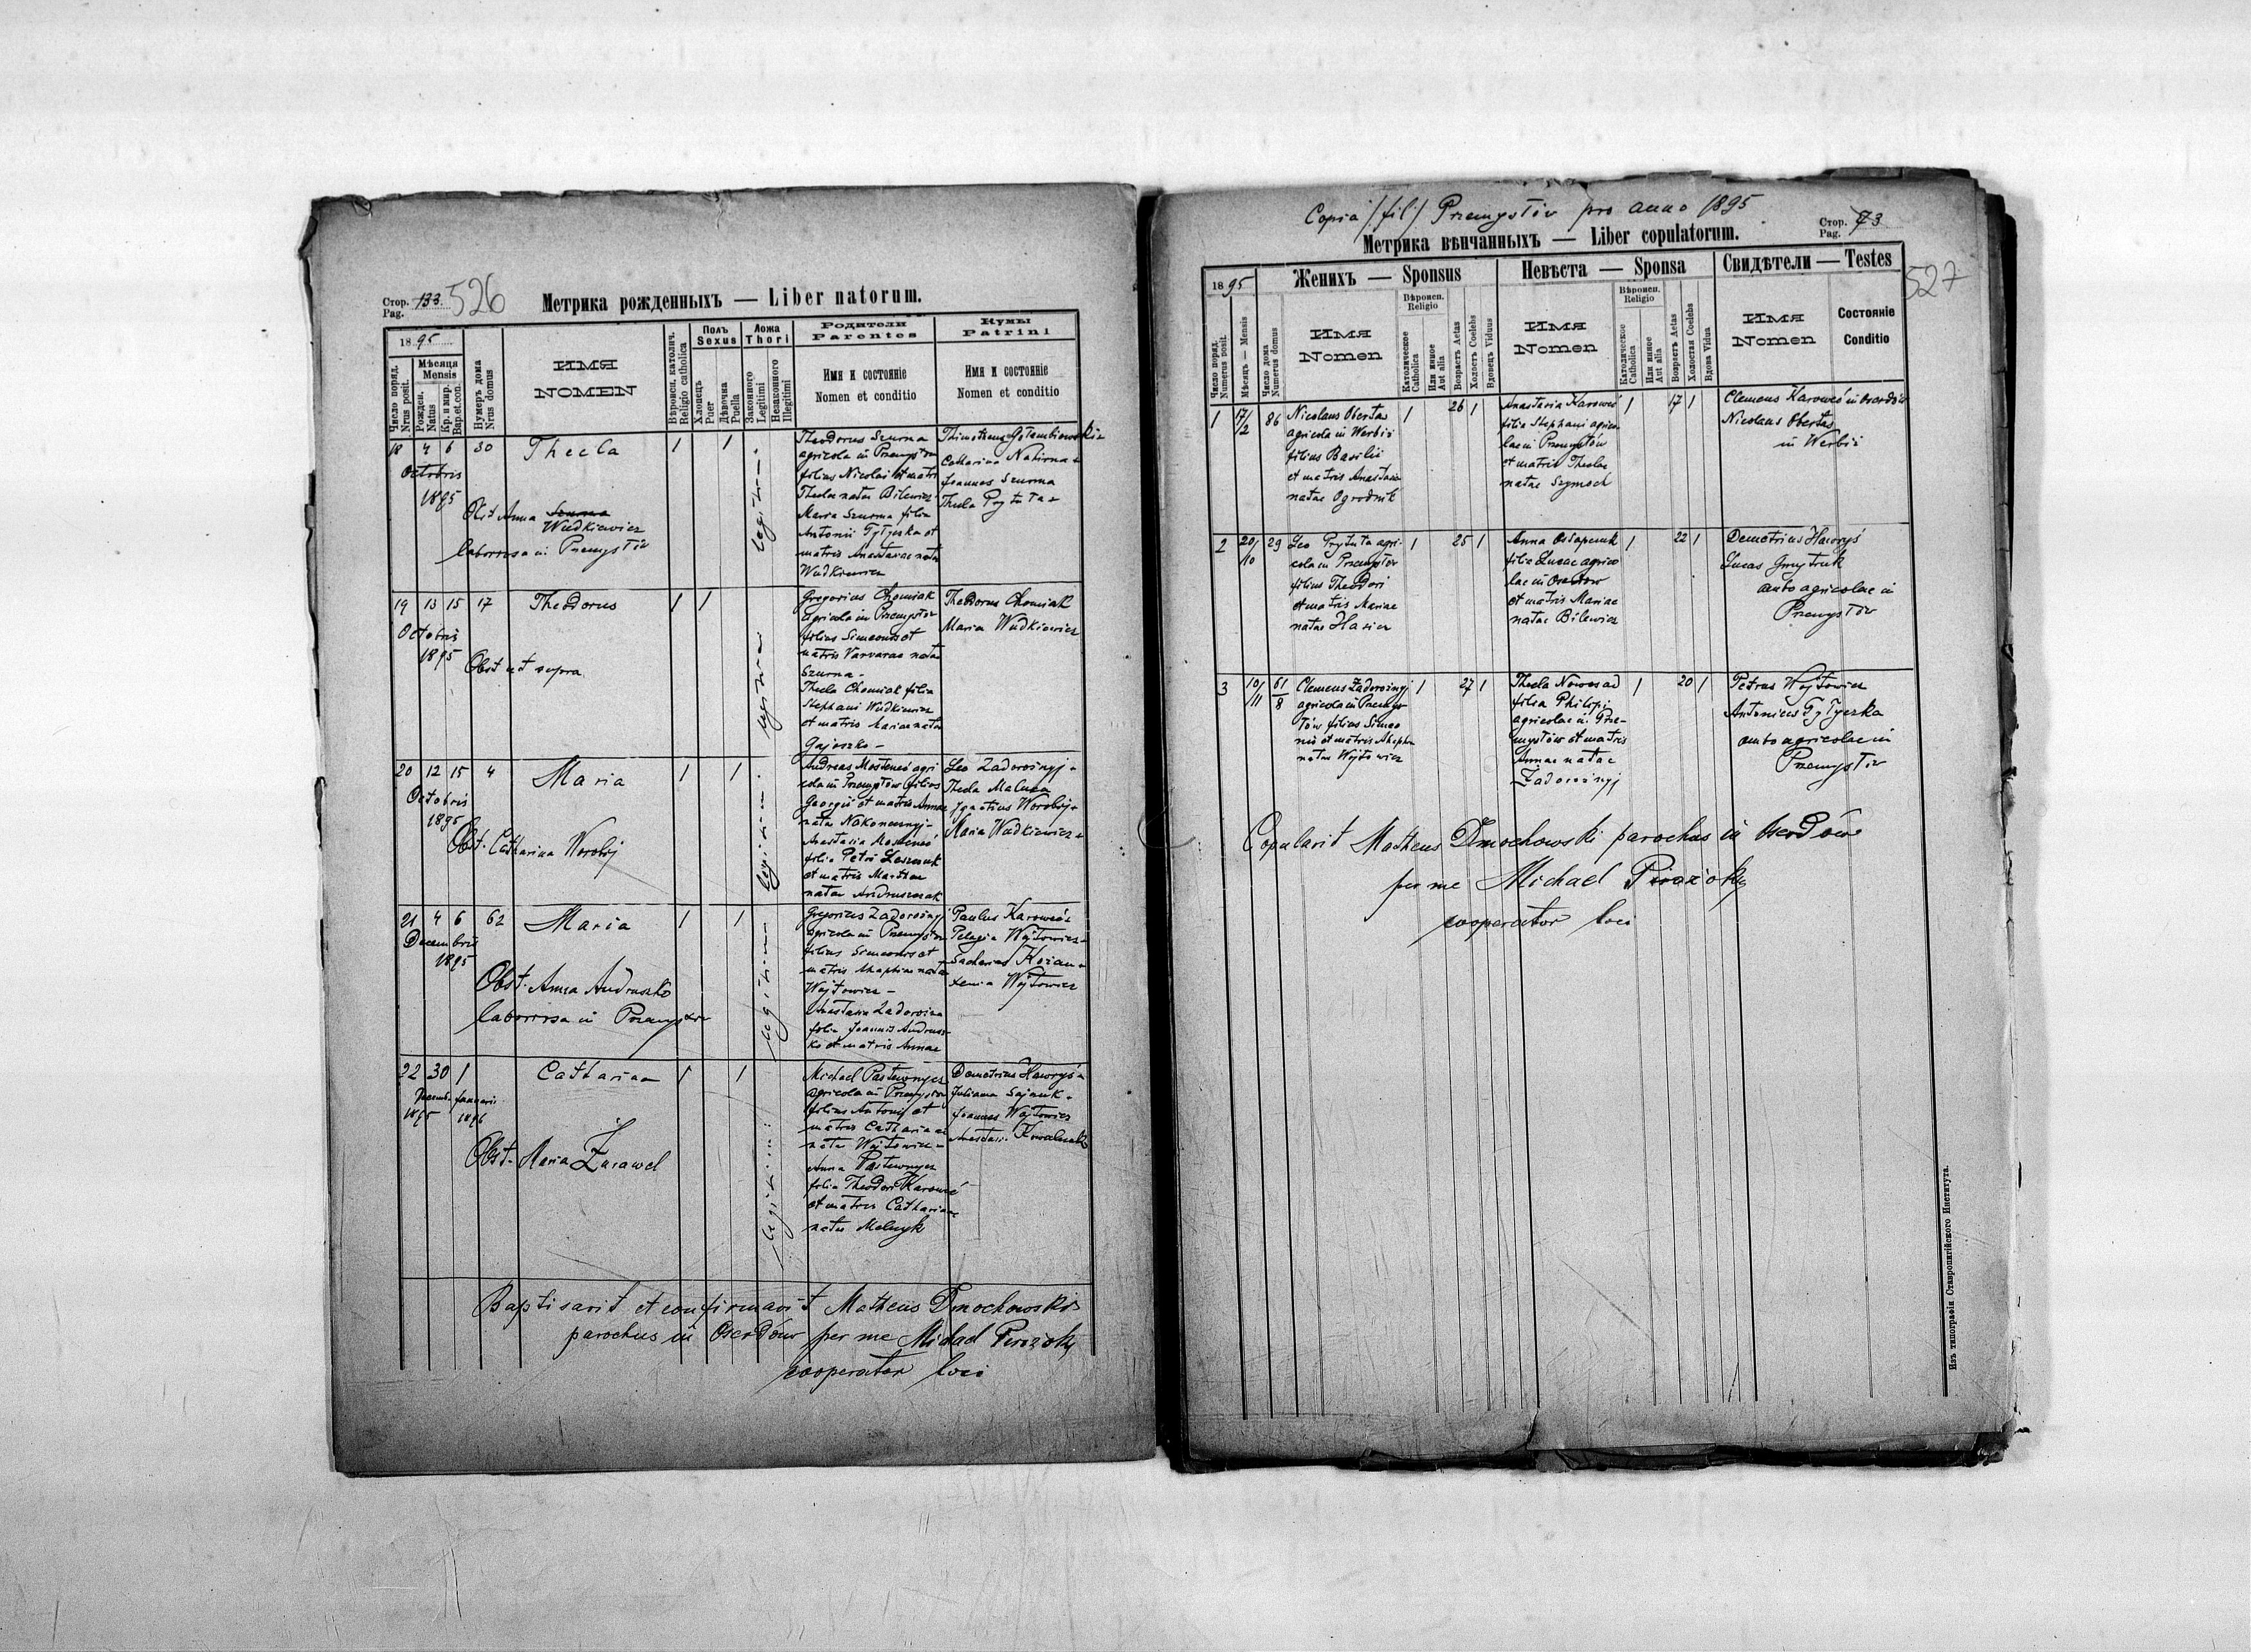 Стор. Pag. 133. 526
Метрика рожденныхъ — Liber natorum.
1895
Число поряд. Nrus posit.
Мѣсяця Mensis
Рожден. Natus
Кр. и мир. Bap. et con.
Нумеръ дома Nrus domus
ИМЯ
NOMEN
Вѣроисп. католич. Religio catholica
Полъ Sexus
Хлопецъ Puer
Дѣвочка Puella
Ложа Thori
Законного Legitimi
Незаконного Illegitimi
Родители
Parentes
Имя и состояніе
Nomen et conditio
Кумы
Patrini
Имя и состояніе
Nomen et conditio
18 4 6 30 Thecla 1 1
Octobris
1895
Obst Anna Szurna
Wudkiewicz
laboriosa in Przemysłów
legitima
Theodorus Szurna
agricola in Przemysłow
filius Nicolai et matris
Theclae natae Bilewicz
Maria Szurna filia
Antonii Tytyszka et
matris Anastasiae natae
Wudkiewicz
Thimotheus Gołembiowski
Catharina Nahirna
Joannes Szurna
Thecla Prytuła
19 13 15 17 Theodorus 1 1
Octobris
1895
Obst ut supra
legitima
Gregorius Chomiak
agricola in Przemysłow
filius Simeonis et
matris Varvarae natae
Szurna -
Thecla Chomiak filia
Stephani Wudkiewicz
et matris Mariae natae
Gajoszko -
Theodorus Chomiak
Maria Wudkiewicz
20 12 15 4 Maria 1 1
Octobris
1895
Obst. Catharina Worobij
legitima
Andreas Mosteneć agri
cola in Przemysłów filius
Georgii et matris Annae
natae Nakonecznyj -
Anastasia Mosteneć
filia Petri Leszczuk
et matris Marthae
natae Andruszczak
Leo Zadorożnyj
Thecla Maluca
Ignatius Worobij
Maria Wudkiewicz
21 4 6 62 Maria 1 1
Decembris
1895
Obst. Anna Andruszko
laboriosa in Przemysłow
legitima
Gregorius Zadorożnyj
agricola in Przemysłow
filius Simeonis et
matris Ahaphiae natae
Wojtowicz -
Anastasia Zadorożna
filia Joannis Andrusz-
ko et matris Annae
Paulus Karoweć
Pelagia Wojtowicz
Zacharias Kozan
Xenia Wojtowicz
22 30 1 Catharina 1 1
Decemb. Januarii
1895 1896
Obst. Maria Żurawel
legitima
Michael Pastewnycz
agricola in Przemysłow
filius Antonij et
matris Catharinae
natae Wojtowicz -
Anna Pastewnycz
filia Theodori Karoweć
et matris Catharinae
natae Melnyk
Demetrius Hawryś
Juliana Sajczuk
Joannes Wojtowicz
Anastasia Kowalczuk
Baptisavit et confirmavit Matheus Dmochowski
parochus in Oserdów per me Michael Pirożoky
cooperator loci
Copia /fil/ Przemysłów pro anno 1895
Стор. Pag. 73
527
Метрика вѣнчанныхъ — Liber copulatorum.
1895
Женихъ — Sponsus
Невѣста — Sponsa
Свидѣтели — Testes
Число поряд. Numerus posit.
Мѣсяць — Mensis
Число дома Numerus domus
ИМЯ
Nomen
Вѣроисп. Religio
Католическое Catholica
Или инное Aut alia
Возрастъ Aetas
Холостъ Coelebs
Вдовецъ Viduus
ИМЯ
Nomen
Вѣроисп. Religio
Католическое Catholica
Или инное Aut alia
Возрастъ Aetas
Холостая Coelebs
Вдова Vidua
ИМЯ
Nomen
Состояніе
Conditio
1 17/2 86
Nicolaus Obertas
agricola in Werbiż
filius Basilii
et matris Anastasiae
natae Ogrodnik
1 26 1
Anastasia Karoweć
filia Stephani agrico
lae in Przemysłów
et matris Theclae
natae Szymoch
1 17 1
Clemens Karoweć in Oserdów
Nicolaus Obertas
in Werbiż
2 20/10 29
Leo Prytuła agri-
cola in Przemysłow
filius Theodori
et matris Mariae
natae Hasiec
1 25 1
Anna Ostapczuk
filia Lucae agrico
lae in Oserdow
et matris Mariae
natae Bilewicz
1 22 1
Demetrius Hawryś
Lucas Gmytruk
ambo agricolae in
Przemysłow
3 10/11 61/8
Clemens Zadorożnyj
agricola in Przemys-
łów filius Simeo
nis et matris Ahaphiae
natae Wojtowicz
1 27 1
Thecla Nowosad
filia Philipi
agricolae in Prze-
mysłów et matris
Annae natae
Zadorożnyj
1 20 1
Petrus Wojtowicz
Antonius Tytyszka
ambo agricolae in
Przemysłów
Copulavit Matheus Dmochowski parochus in Oserdów
per me Michael Pirożoky
cooperator loci
Изъ типографіи Ставропигійского Института.